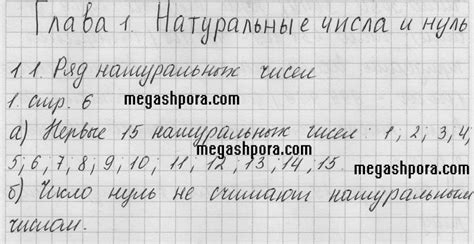 Глава 1. Натуральные числа и нуль
1.1. Ряд натуральных чисел
1. стр. 6
megashpora.com
а) Первые 15 натуральных чисел: 1; 2; 3; 4;
megashpora.com
5; 6; 7; 8; 9; 10; 11; 12; 13; 14; 15.
megashpora.com
б) Число нуль не считают натуральным
числом.